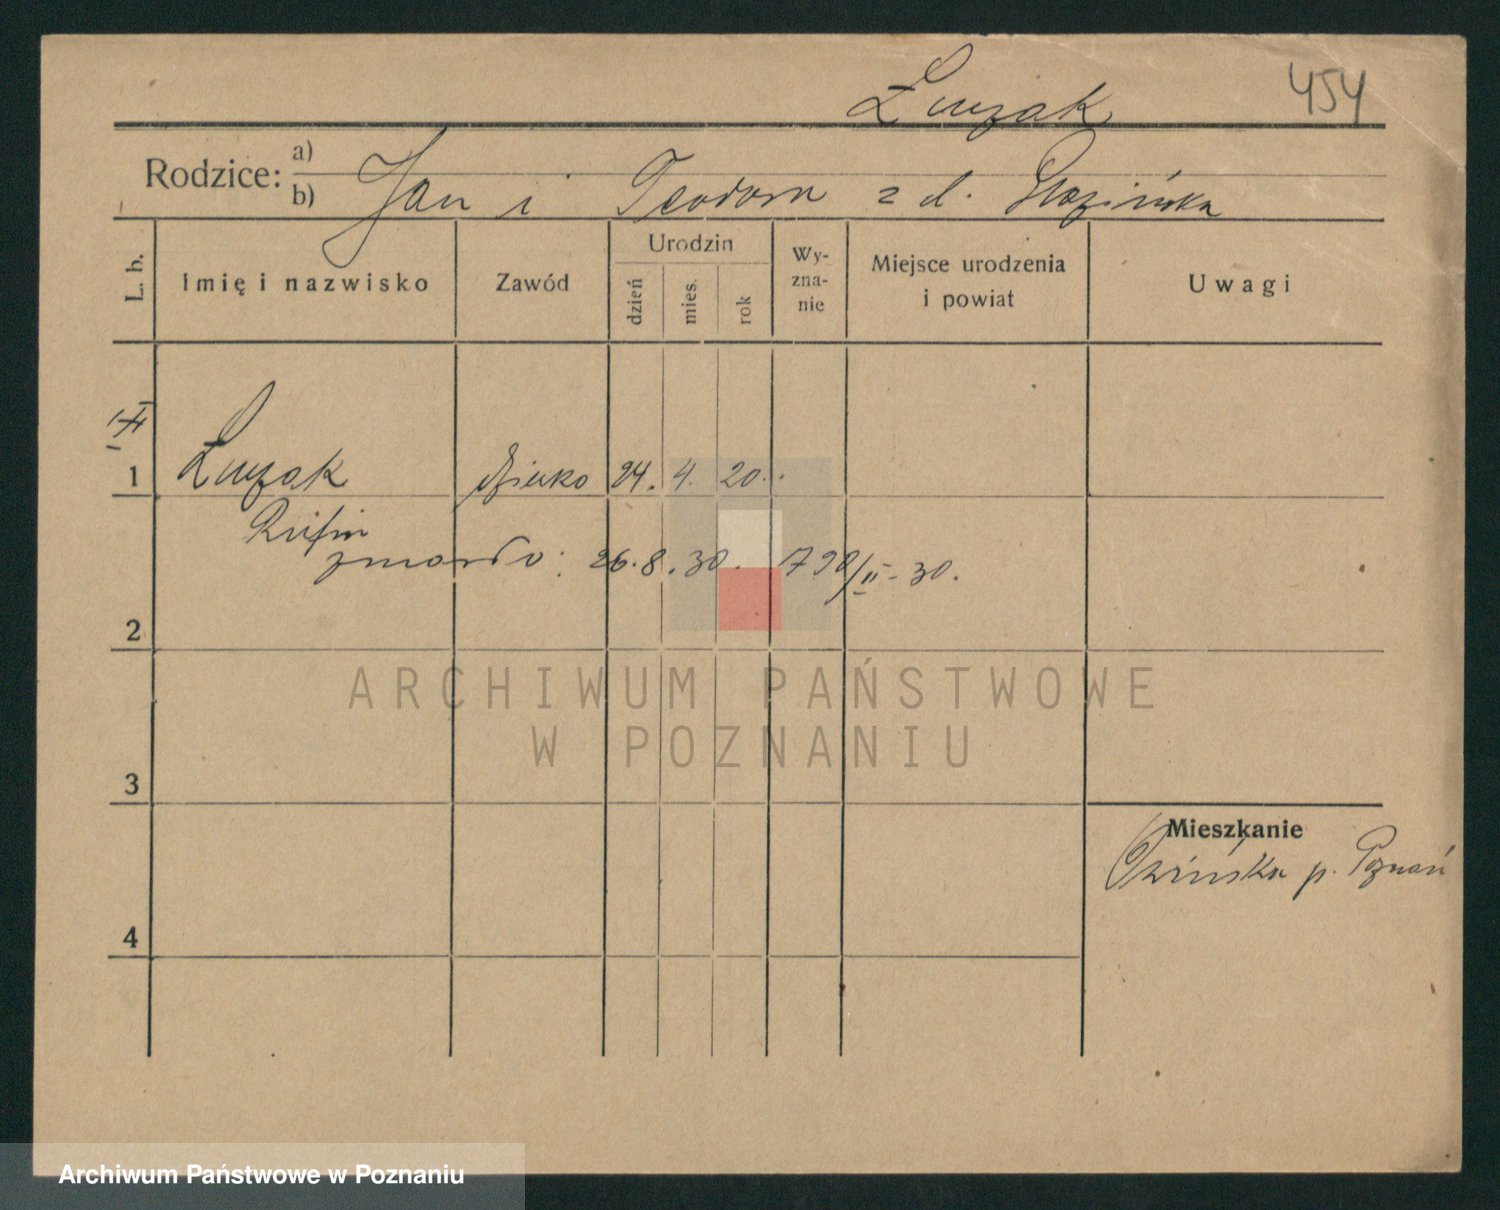 454
Łuczak
Rodzice: a)
b) Jan i Teodora z d.
L. b. Imię i nazwisko Zawód Urodzin dzień mies. rok Wyznanie Miejsce urodzenia i powiat Uwagi
II
1 Łuczak dziecko 24. 4. 20.
zmarło: 26. 8. 30. 790/II - 30.
2
ARCHIWUM PAŃSTWOWE
W POZNANIU
3
Mieszkanie
Owińska p. Poznań
4
Archiwum Państwowe w Poznaniu